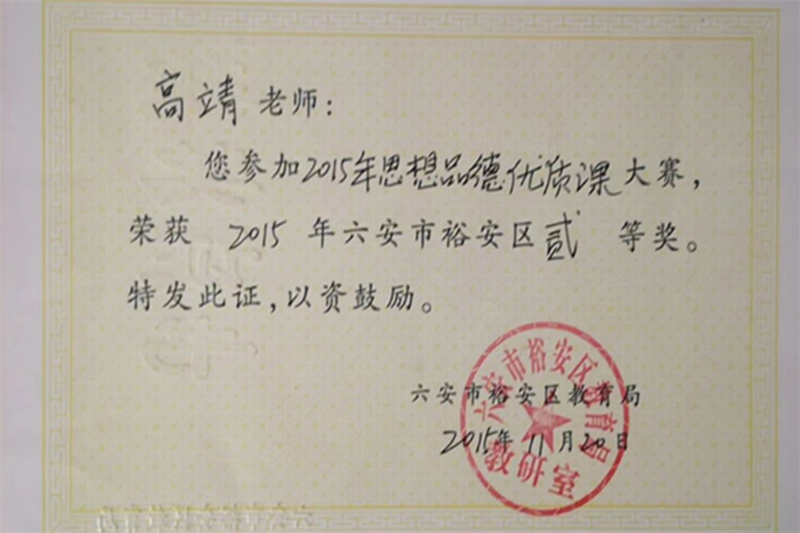 高靖老师:
您参加2015年思想品德优质课大赛,
荣获 2015 年六安市裕安区贰 等奖。
特发此证,以资鼓励。
六安市裕安区教育局
2015年11月20日
六安市裕安区教育局
教研室